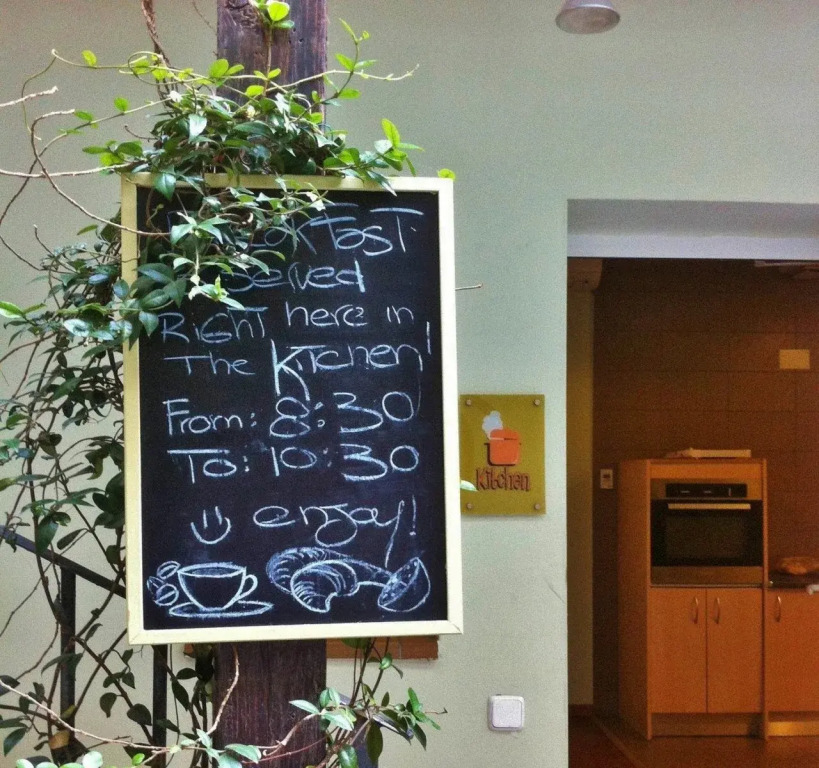 Served
Right here in
The Kitchen!
From: 8:30
To: 10:30
enjoy!
Kitchen